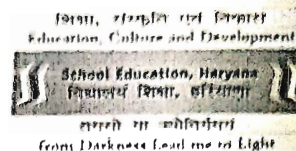 शिक्षा, संस्कृति एवं विकास
Education, Culture and Development
School Education, Haryana
विद्यालय शिक्षा, हरियाणा
तमसो मा ज्योतिर्गमय
From Darkness Lead me to Light